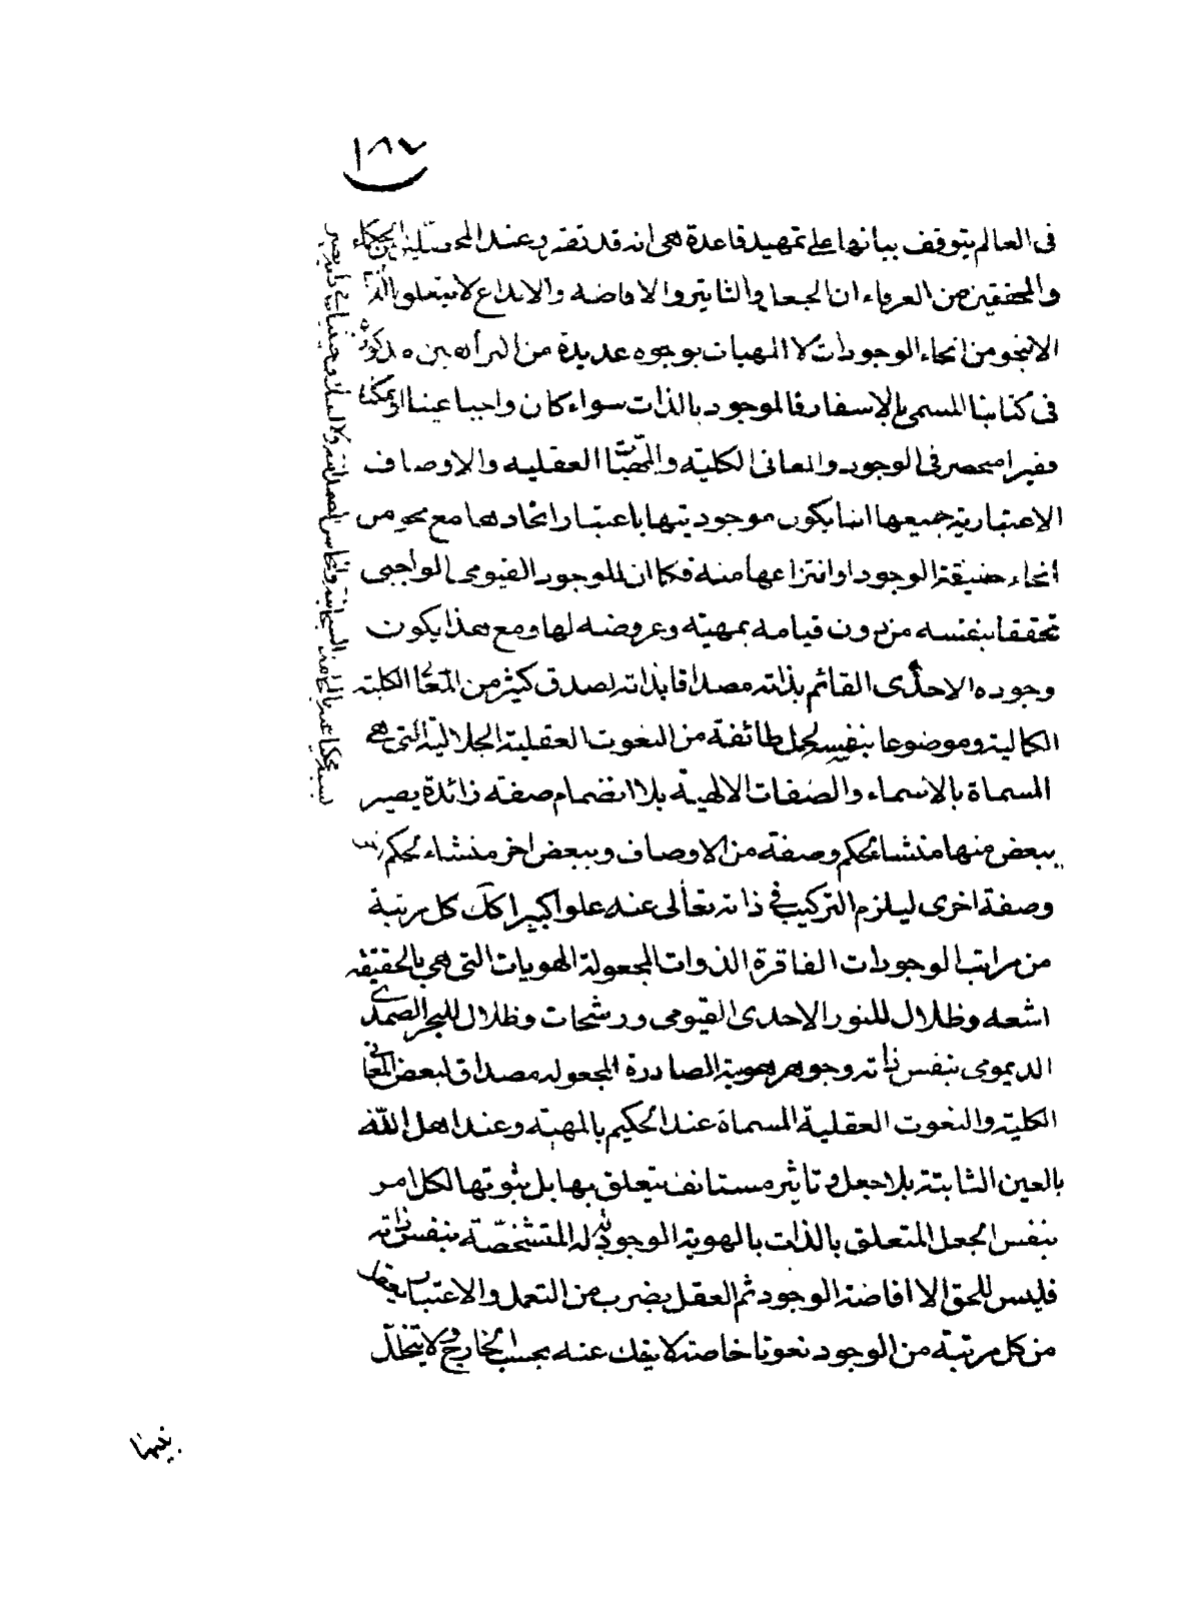 ١٨٧
فى العالم يتوقف بيانها على تمهيد قاعدة هى انه قد تقرر عند المحصلين من الحكماء
والمحققين من العرفاء ان الجعل والتاثير والافاضه والابداع لا يتعلق بالذات
الا بنحو من انحاء الوجودات لا المهيات بوجوه عديدة من البراهين مذكورة
فى كتابنا المسمى بالاسفار فالموجود بالذات سواء كان واجبا غينا او ممكنا
فقيرا منحصر فى الوجود والمعانى الكلية والمهيات العقليه والاوصاف
الاعتبارية جميعها انما يكون موجوديتها باعتبار اتحادها مع نحو من
انحاء حقيقة الوجود او انتزاعها منه فكما ان للوجود القيومى الواجبى
تحققا بنفسه من دون قيامه بمهيته وعروضه لها ومع هذا يكون
وجوده الاحدى القائم بذاته مصداقا بذاته لصدق كثير من المعانى الكلية
الكمالية وموضوعا بنفسه لحمل طائفة من النعوت العقلية الجلالية التى هى
المسماة بالاسماء والصفات الالهية بلا انضمام صفة زائدة يصير
ببعض منها منشاء لحكم وصفة من الاوصاف وببعض اخر منشاء لحكم
وصفة اخرى ليلزم التركيب فى ذاته تعالى عنه علوا كبيرا كك كل مرتبة
من مراتب الوجودات الفاقرة الذوات المجعولة الهويات التى هى بالحقيقه
اشعه وظلال للنور الاحدى القيومى ورشحات وظلال للبحر الصمدى
الديمومى بنفس ذاته وجوهر هوية الصادرة المجعوله مصداق لبعض المعانى
الكلية والنعوت العقلية المسماة عند الحكيم بالمهية وعند اهل الله
بالعين الثابتة بلا جعل وتاثير مستانف يتعلق بها بل ثبوتها لكل امر
بنفس الجعل المتعلق بالذات بالهوية الوجودية له المتشخصة بنفس ذاته
فليس للحق الا افاضة الوجود ثم العقل بضرب من التعمل والاعتبار
من كل مرتبة من الوجود نعوتا خاصة لا ينفك عنه بحسب الخارج ولا يتخلل
بينهما